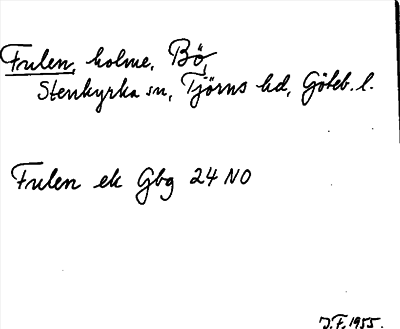 Frulen, holme, Bö,
Stenkyrka sn, Tjörns hd, Göteb. l.
Frulen ek Gbg 24 NO
J.F. 1955.